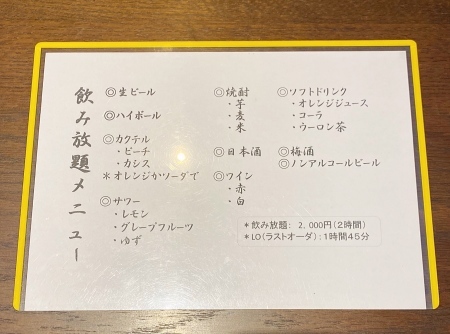 飲み放題メニュー
◎生ビール
◎ハイボール
◎カクテル
・ピーチ
・カシス
＊オレンジかソーダで
◎サワー
・レモン
・グレープフルーツ
・ゆず
◎焼酎
・芋
・麦
・米
◎日本酒
◎ワイン
・赤
・白
◎ソフトドリンク
・オレンジジュース
・コーラ
・ウーロン茶
◎梅酒
◎ノンアルコールビール
＊飲み放題： 2,000円(2時間)
＊LO(ラストオーダ)：1時間45分